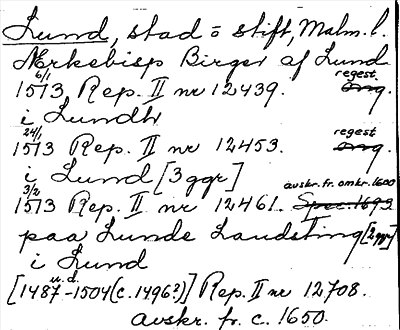 Lund, stad o stift, Malm. l.
Ærkebisp Birger af Lund
6/1 1513 Rep. II nr 12439. orig. regest.
i Lundh
24/1 1513 Rep. II nr 12453. orig. regest
i Lund [3 ggr]
3/2 1513 Rep. II nr 12461. Spec. 1693 avskr. fr. omkr. 1600
paa Lunde Landsting [2 ggr]
i Lund
[1487-1504 (c. 1496?)] u.d. Rep. II nr 12708.
avskr. fr. c. 1650.